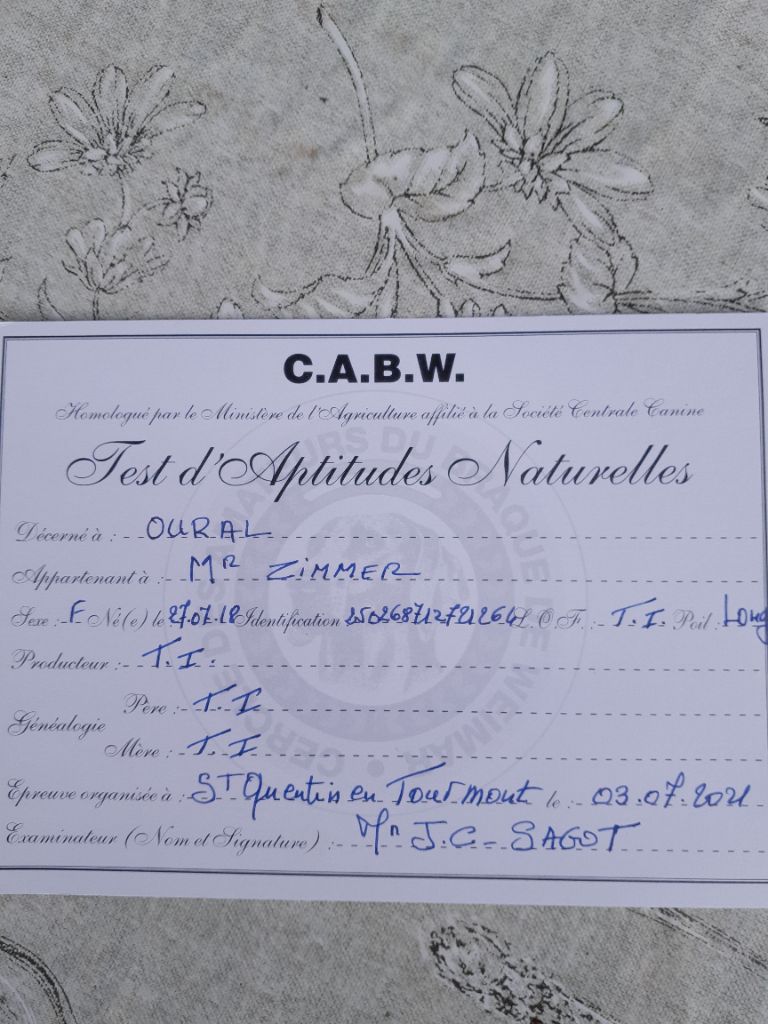 C.A.B.W.
Homologué par le Ministère de l'Agriculture affilié à la Société Centrale Canine
Test d'Aptitudes Naturelles
Décerné à : OURAL
Appartenant à : MR ZIMMER
Sexe : F Né(e) le 27.07.18 Identification 250268712721264 L.O.F. : T.I. Poil : Long
Producteur : T.I.
Généalogie
Père : T.I
Mère : T.I
Epreuve organisée à : ST Quentin en Tourmont le : 03.07.2021
Examinateur (Nom et Signature) : Mr J.C. SAGOT